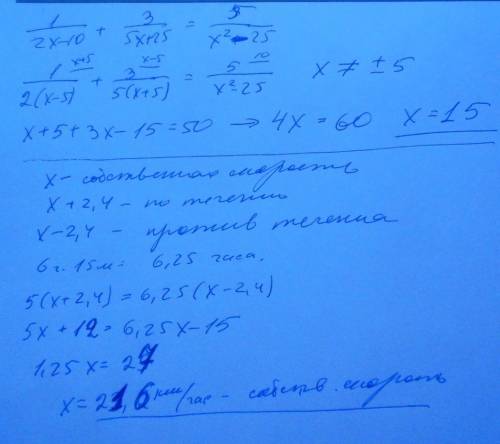 1/(2x-10) + 3/(5x+25) = 5/(x²-25)
1^(x+5)/(2(x-5)) + 3^(x-5)/(5(x+5)) = 5^10/(x²-25) x ≠ ±5
x+5+3x-15=50 → 4x=60 x=15
x - собственная скорость
x+2,4 - по течению
x-2,4 - против течения
6ч. 15м = 6,25 часа.
5(x+2,4)=6,25(x-2,4)
5x+12=6,25x-15
1,25x=27
x=21,6 км/час - собств. скорость